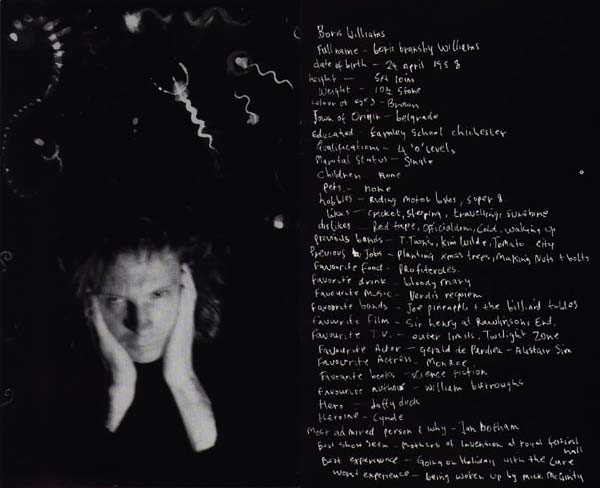 Boris Williams
Full name - boris bransby williams
date of birth - 24 april 1958
height - 5ft 10in
Weight - 10½ Stone
colour of eyes - Brown
Town of Origin - belgrade
educated - Earnley School chichester
Qualifications - 4 'o' levels
Marital Status - Single
Children - none
pets - none
hobbies - Riding motor bikes, super 8.
likes - cricket, sleeping, travelling, sunshine
dislikes - Red tape, Officialdom, Cold, waking up
previous bands - T. Twins, Kim Wilde, Tomato City
Previous Jobs - planting xmas trees, Making Nuts + bolts
Favourite food - Profiteroles.
Favourite drink - bloody mary
Favourite Music - Verdis requiem
Favourite bands - Joe pineapple + the billiard tables
Favourite film - Sir henry at Rawlinsons End.
Favourite T.V. - outer limits, Twilight Zone
Favourite Actor - Gerald de Pardieu - Alistair Sim
Favourite Actress - Monroe
Favourite books - science fiction
favourite author - William burroughs
Hero - daffy duck
Heroine - Cynde
Most admired person & why - Ian botham
Best show seen - Mothers of Invention at royal festival hall
Best experience - Going on Holiday with the Cure
Worst experience - being woken up by mick McGinty